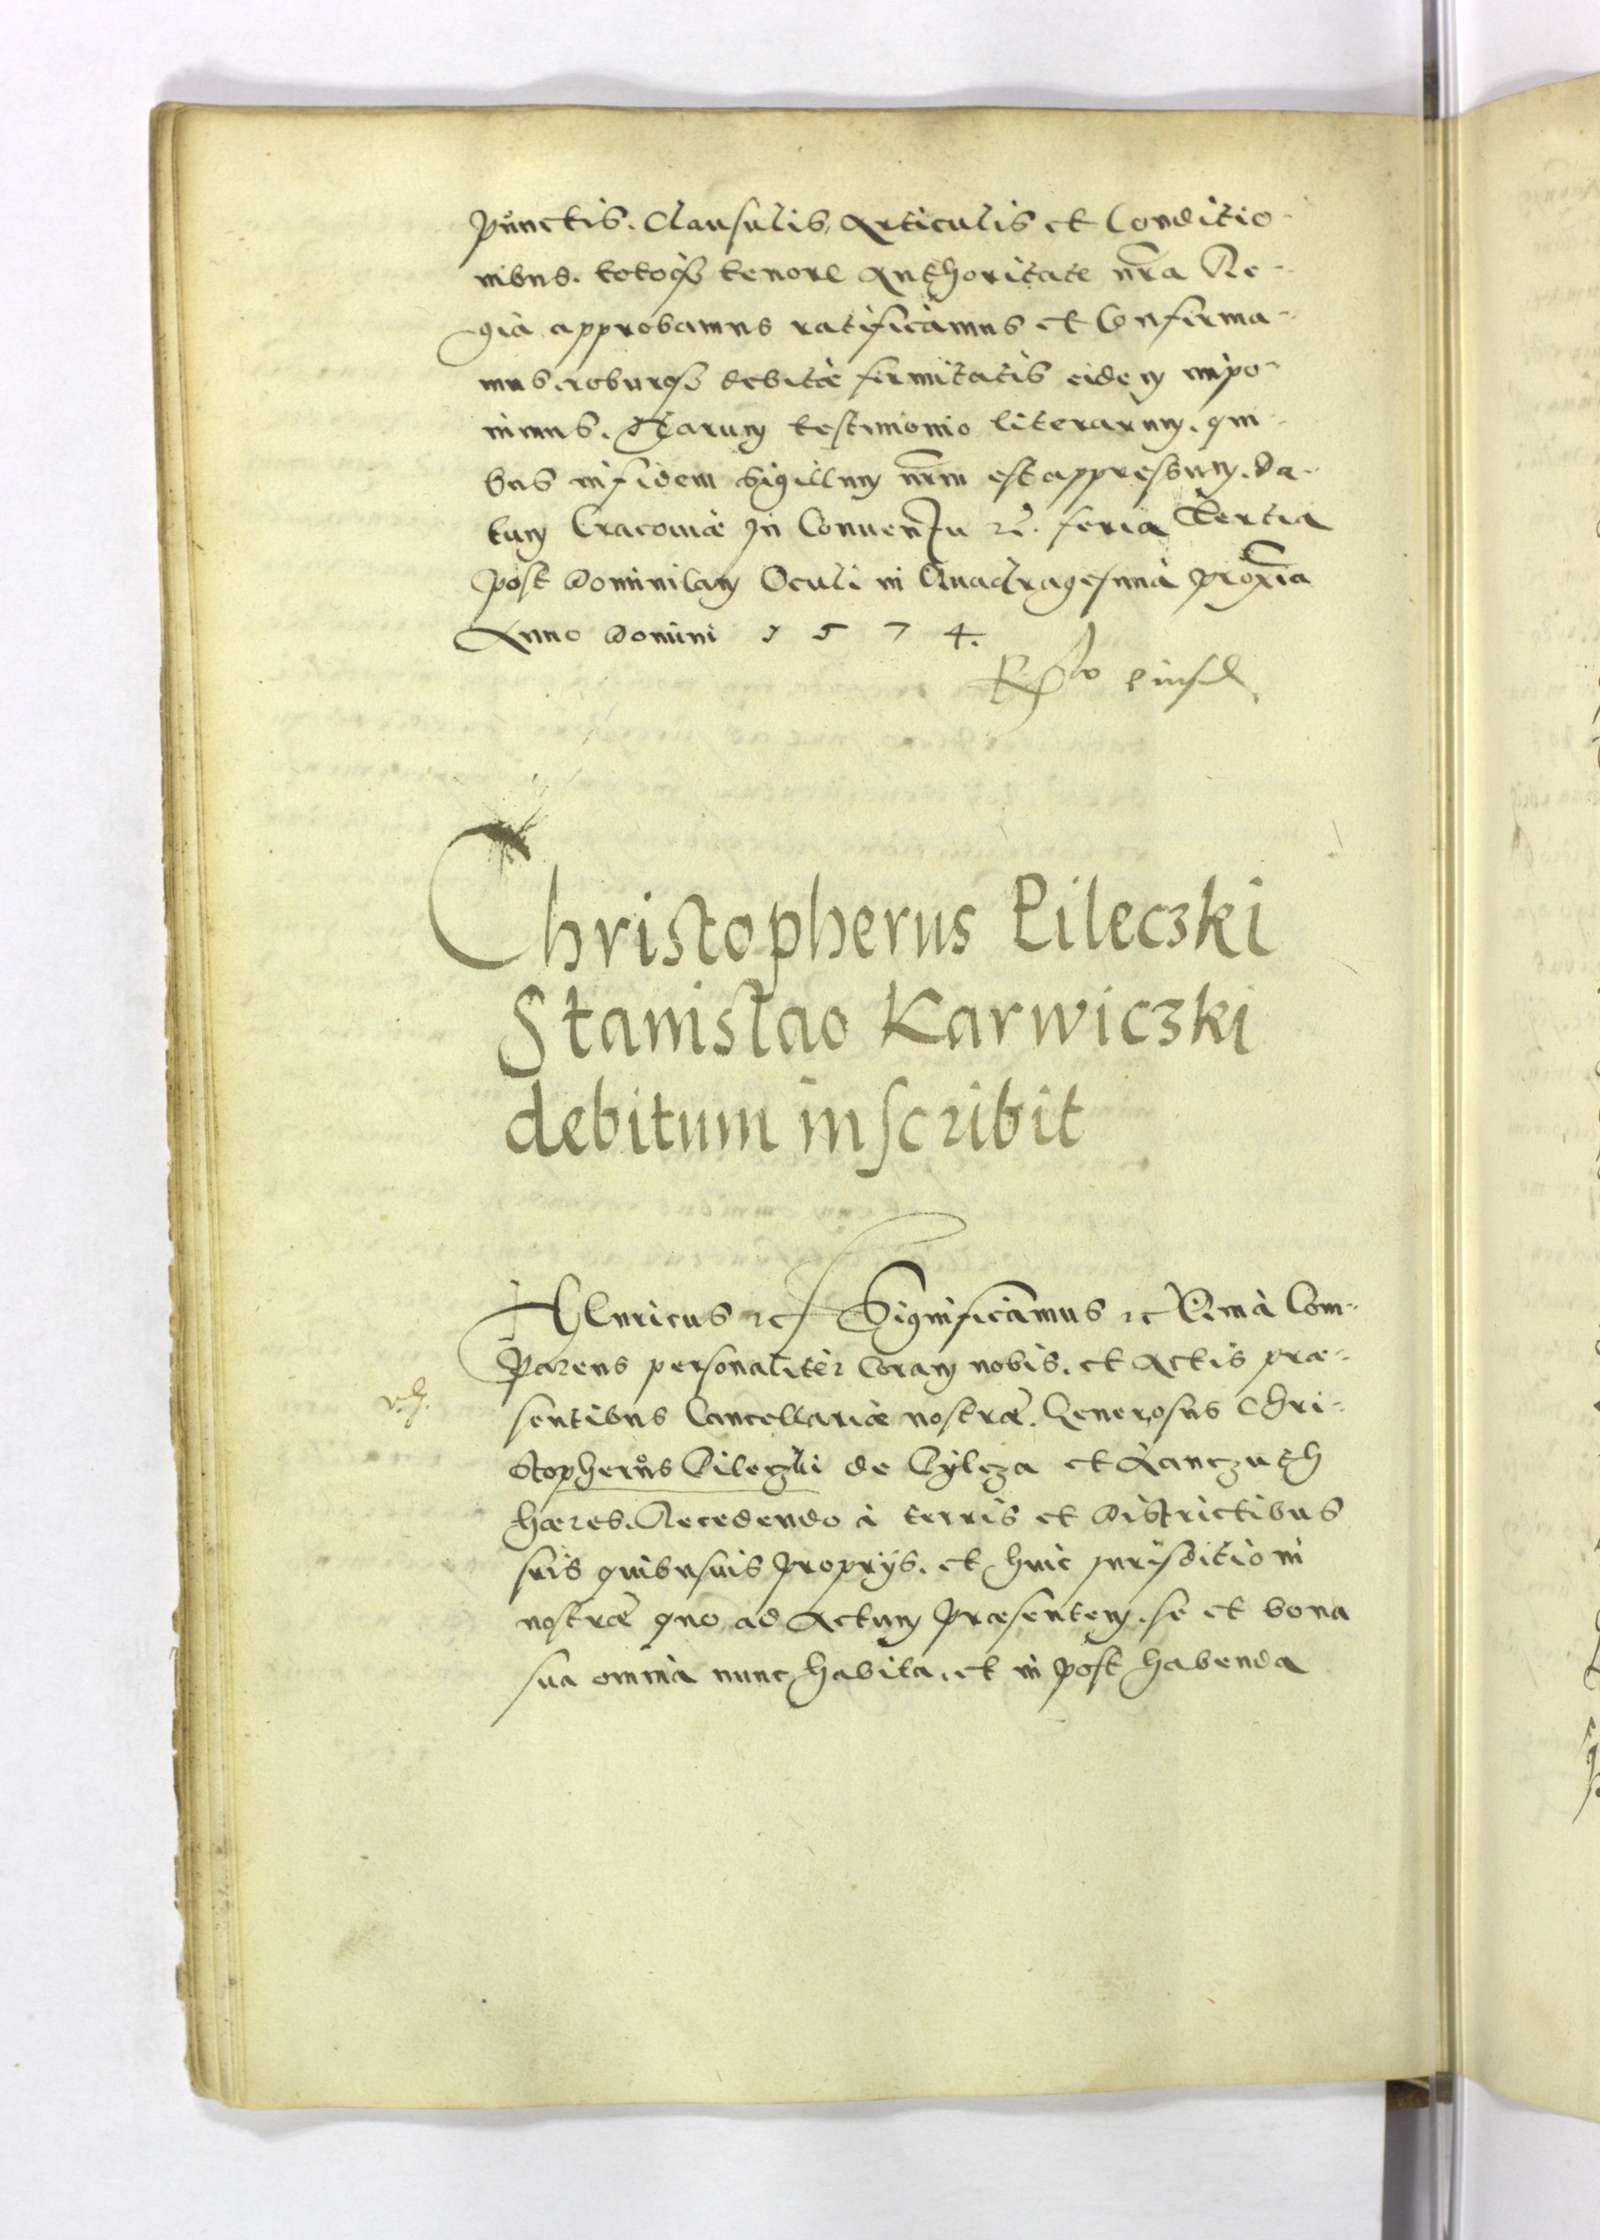 punctis. Clausulis, Articulis et Conditio-
nibus. totoq₃ tenore Authoritate nr̃a Re-
gia approbamus ratificamus et Confirma-
mus. roburq₃ debitæ firmitatis eidem impo-
nimus. Harum testimonio literarum. qui-
bus in fidem Sigillum nr̃m est appressum. Da-
tum Cracoviæ In Conventu etc. feria Tertia
post Dominicam Oculi in Quadragesima proxĩa
Anno Domini 1 5 7 4.
Christopherus Pileczki
Stanislao Karwiczki
debitum inscribit
Henricus etc Significamus etc Quia Com-
parens personaliter Coram nobis. et Actis præ-
sentibus Cancellariæ nostræ. Generosus Chri-
stopherus Pileczki de Pylcza et Lanczuth
hæres. Recedendo à terris et Districtibus
suis quibusuis proprijs. et huic iurisditioni
nostræ quo ad Actum præsentem. se et bona
sua omnia nunc habita, et in post habenda